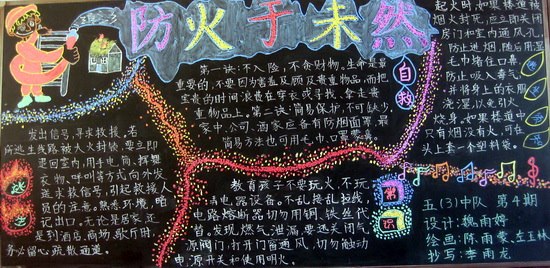 防火于未然
第一诀:不入险,不贪财物。生命是最
重要的,不要因为害羞及顾及贵重物品,而把
宝贵的时间浪费在穿衣或寻找、拿走贵
重物品上。第二诀:简易保护,不可缺少。
家中、公司、酒家应备有防烟面罩,最
简易方法也可用毛巾、口罩蒙鼻。
自救
起火时,如果楼道被
烟火封死,应立即关闭
房门和室内通风孔,
防止进烟。随后用湿
毛巾堵住口鼻,
防止吸入毒气,
并将身上的衣服
浇湿,以免引火
烧身。如果楼道中
只有烟没有火,可在
头上套一个塑料袋。
逃生
发出信号,寻求救援。若
所逃生线路被大火封锁,要立即
退回室内,用手电筒、挥舞
衣物、呼叫等方式向外发
送求救信号,引起救援人
员的注意。熟悉环境,暗
记出口。无论是居家,还
是到酒店、商场、歌厅时,
务必留心疏散通道。
教育孩子不要玩火,不玩
弄电器设备。不乱接乱拉线,
电路熔断器切勿用铜、铁丝代
替。发现燃气泄漏,要迅关闭气
源阀门,打开门窗通风,切勿触动
电源开关和使用明火。
常识
五(3)中队 第4期
设计:魏雨婷
绘画:陈雨蒙、左玉林
抄写:李雨龙